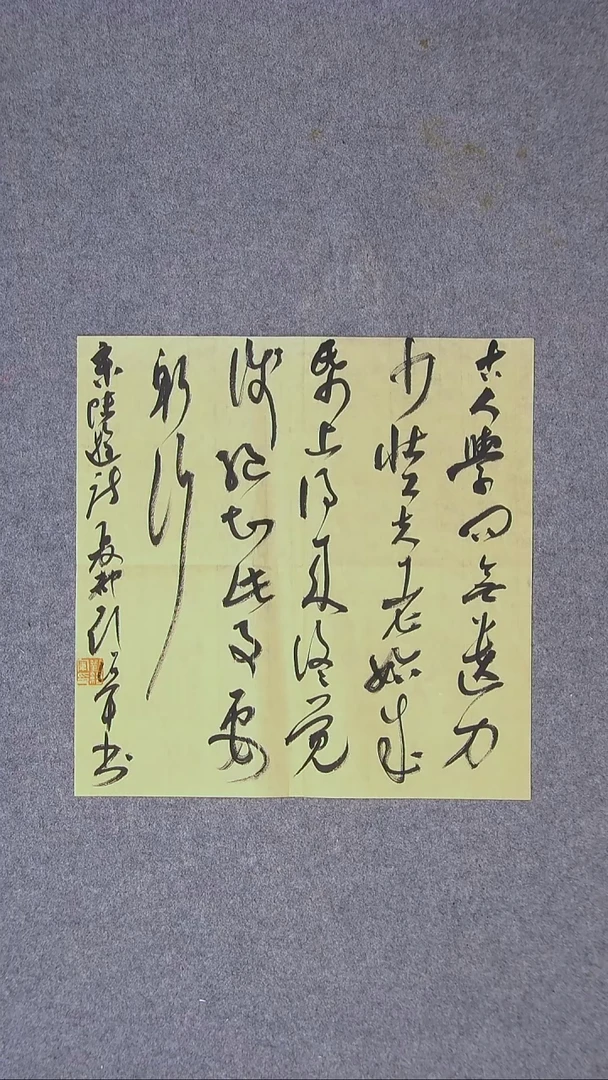 古人學问無遗力
少壮工夫老始成
纸上得来终觉
浅绝知此事要
躬行
录陆游诗 书